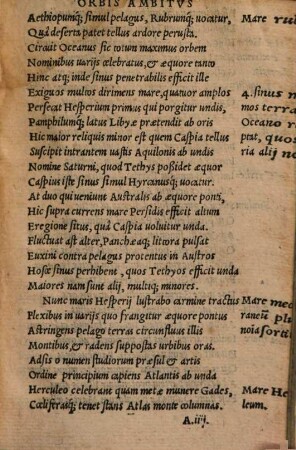 ORBIS AMBITVS
Aethiopumq́; simul pelagus, Rubrumq́; uocatur,
Quà deserta patet tellus ardore perusta.
Circuit Oceanus sic totum maximus orbem
Nominibus uarijs celebratus, & æquore tanto
Hinc atq́; inde sinus penetrabilis efficit ille
Exiguos multos dirimens mare, quatuor amplos
Perfecat Hesperium primus qui porgitur undis,
Pamphilumq́; latus Libyæ prætendit ab oris
Hic maior reliquis minor est quem Caspia tellus
Suscipit intrantem uastis Aquilonis ab undis
Nomine Saturni, quod Tethys possidet æquor
Caspius iste sinus simul Hyrcanusq́; uocatur.
At duo qui ueniunt Australis ab æquore ponti,
Hic supra currens mare Persidis efficit altum
Eregione situs, quà Caspia uoluitur unda.
Fluctuat ast alter, Panchæaq́; littora pulsat
Euxini contra pelagus protentus in Austros
Hosce sinus perhibent, quos Tethyos efficit unda
Maiores nam sunt alij, multiq́; minores.
Nunc maris Hesperij lustrabo carmine tractus
Plexibus in uarijs quo frangitur æquore pontus
Astringens pelago terras circunfluus illis
Montibus, & radens suppostas urbibus oras.
Adsis o numen studiorum præsul & artis
Ordine principium capiens Atlantis ab unda
Herculeo celebrant quam metæ munere Gades,
Cœliferasq́; tenet stans Atlas monte columnas.
A.iij.
Mare
4. sinus
mos terra
Oceano
ptat, quos
ria alij
Mare
raneū
noia
Mare He
leum.